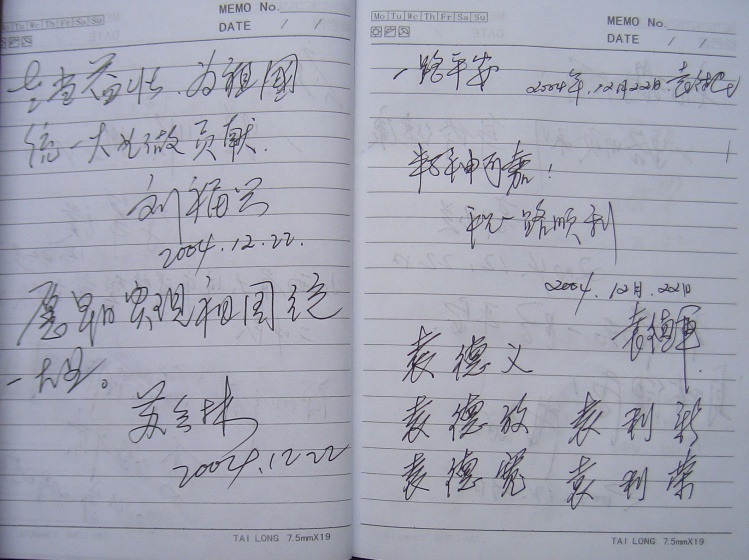 MEMO No.
DATE / /
Mo Tu We Th Fr Sa Su
老当益壮、为祖国
统一大业做贡献.
刘福兴
2004.12.22.
愿早日实现祖国统
一大业。
苏
2004.12.22
TAI LONG 7.5mmX19
Mo Tu We Th Fr Sa Su
MEMO No.
DATE / /
一路平安
2004年.12月22日.袁德
精神可嘉!
祝一路顺利
2004.12月.22日
袁德军
袁德义
袁德放 袁利新
袁德宽 袁利荣
TAI LONG 7.5mmX19